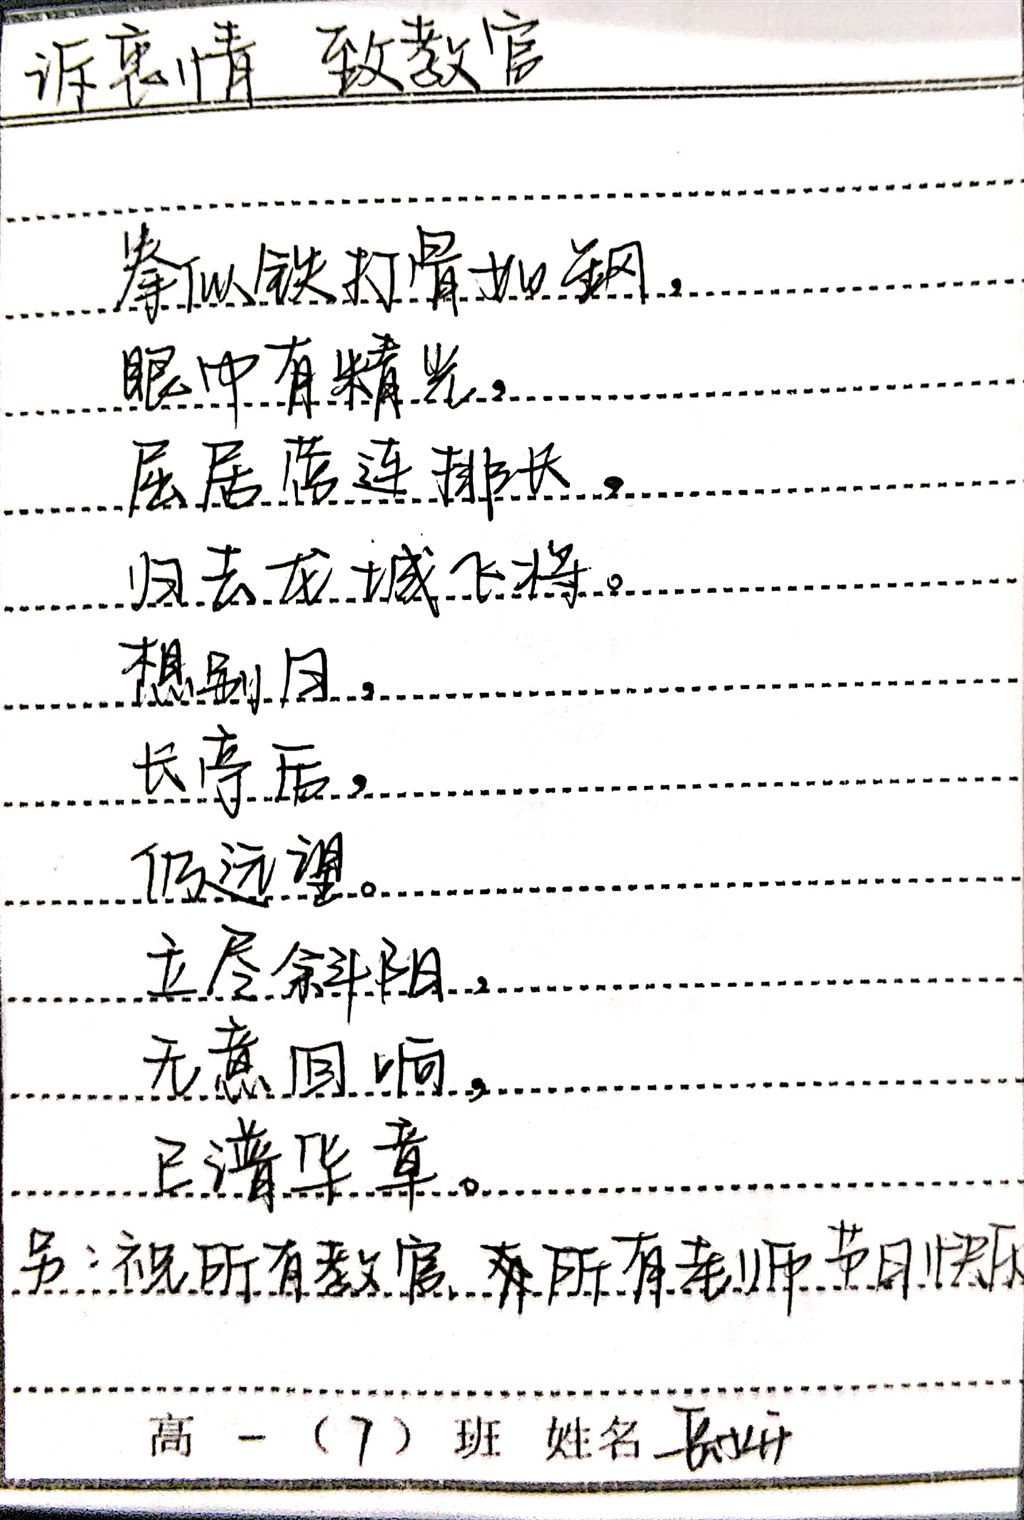 诉衷情 致教官
拳似铁打骨如钢，
眼中有精光，
屈居营连排长，
归去龙城飞将。
想别日，
长亭后，
仍远望。
立尽斜阳，
无意回响，
已谱华章。
另：祝所有教官、所有老师节日快乐
高一（7）班 姓名